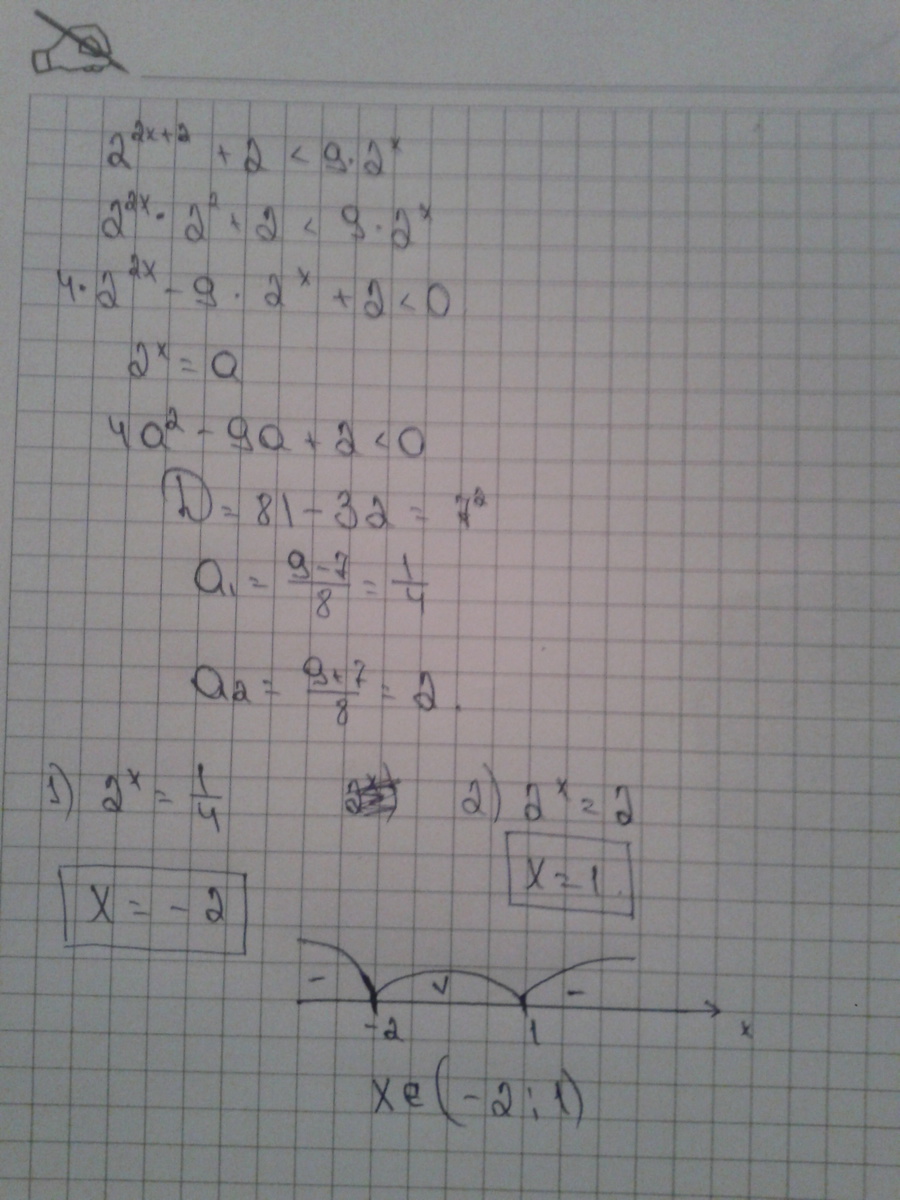 2^{2x+2} + 2 < 9 · 2^x
2^{2x} · 2^2 + 2 < 9 · 2^x
4 · 2^{2x} - 9 · 2^x + 2 < 0
2^x = a
4a^2 - 9a + 2 < 0
D = 81 - 32 = 7^2
a_1 = \frac{9-7}{8} = \frac{1}{4}
a_2 = \frac{9+7}{8} = 2.
1) 2^x = \frac{1}{4} 2) 2^x = 2
x = -2 x = 1.
- v -
-2 1 x
x ∈ (-2; 1)